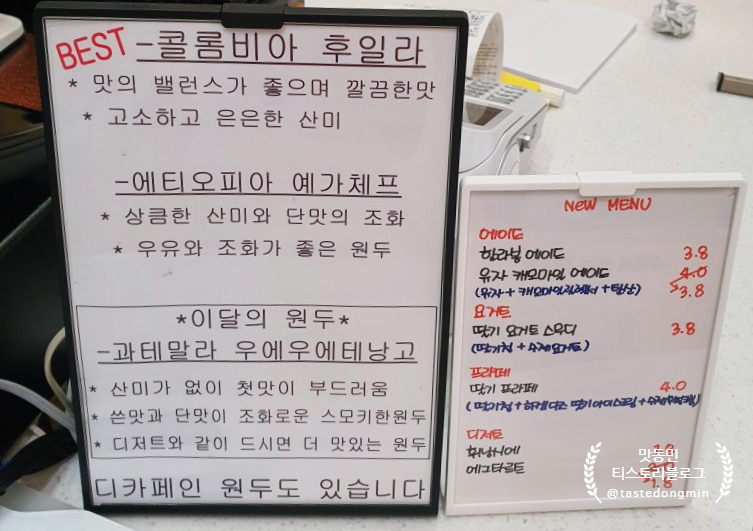 BEST -콜롬비아 후일라
* 맛의 밸런스가 좋으며 깔끔한맛
* 고소하고 은은한 산미
-에티오피아 예가체프
* 상큼한 산미와 단맛의 조화
* 우유와 조화가 좋은 원두
*이달의 원두*
-과테말라 우에우에테낭고
* 산미가 없이 첫맛이 부드러움
* 쓴맛과 단맛이 조화로운 스모키한원두
* 디저트와 같이 드시면 더 맛있는 원두
디카페인 원두도 있습니다
NEW MENU
에이드
한라봉 에이드 3.8
유자 캐모마일 에이드 4.0
(유자 + 캐모마일 + 탄산) 3.8
요거트
딸기 요거트 스무디 3.8
(딸기청 + 수제요거트)
프라페
딸기 프라페 4.0
(딸기청 + 하겐다즈 딸기아이스크림 +
디저트
휘낭시에
에그타르트
1.8
맛동민
티스토리블로그
@tastedongmin